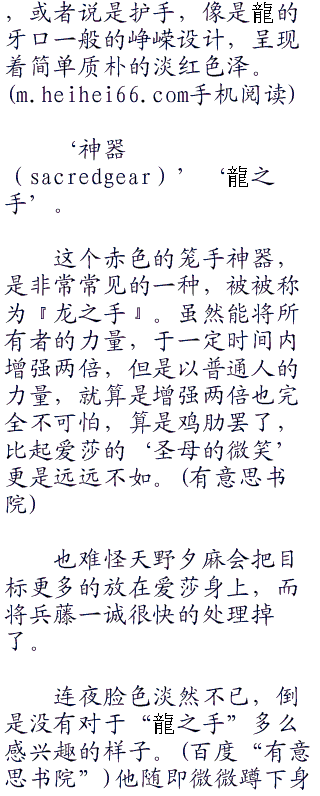 ，或者说是护手，像是龍的
牙口一般的峥嵘设计，呈现
着简单质朴的淡红色泽。
(m.heihei66.com手机阅读)
‘神器
（sacredgear）’ ‘龍之
手’。
这个赤色的笼手神器，
是非常常见的一种，被被称
为『龙之手』。虽然能将所
有者的力量，于一定时间内
增强两倍，但是以普通人的
力量，就算是增强两倍也完
全不可怕，算是鸡肋罢了，
比起爱莎的‘圣母的微笑’
更是远远不如。(有意思书
院)
也难怪天野夕麻会把目
标更多的放在爱莎身上，而
将兵藤一诚很快的处理掉
了。
连夜脸色淡然不已，倒
是没有对于“龍之手”多么
感兴趣的样子。(百度“有意
思书院”)他随即微微蹲下身